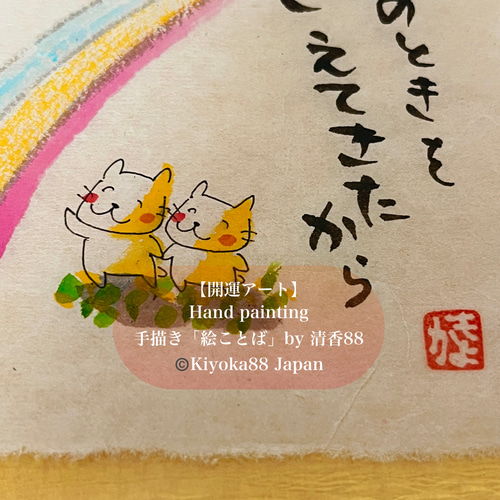 のときを
えてきたから
きよか
【開運アート】
Hand painting
手描き「絵ことば」by 清香88
©Kiyoka88 Japan